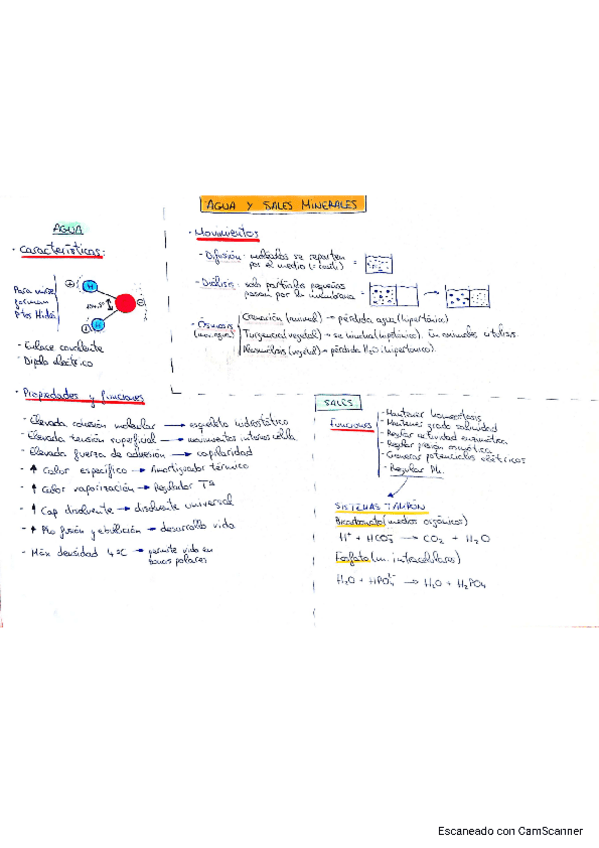 AGUA Y SALES MINERALES
AGUA
· Características:
Para unirse
forman
Ptes Hidró
H
H
· Enlace covalente
· Dipolo eléctrico
· Movimientos
- Difusión: moléculas se reparten
por el medio
- Diálisis: solo partículas pequeñas
pasan por la membrana =
- Ósmosis
Crenación (animal) → pérdida agua (hipertónico).
Turgencia (vegetal) → se hincha (hipotónico). En animales citólisis.
Plasmólisis (vegetal) → pérdida H2O (hipertónico).
· Propiedades y funciones
- Elevada cohesión molecular → esqueleto hidrostático
- Elevada tensión superficial → movimientos internos célula
- Elevada fuerza de adhesión → capilaridad
- ↑ Calor específico → Amortiguador térmico
- ↑ Calor vaporización → Regulador Tª
- ↑ Cap disolvente → disolvente universal
- ↑ Pto fusión y ebullición → desarrollo vida
- Máx densidad 4ºC → permite vida en
zonas polares
SALES
Funciones
- Mantener homeostasis
- Mantener grado salinidad
- Regular actividad enzimática
- Regular presión osmótica
- Generar potenciales eléctricos
- Regular PH.
SISTEMAS TAMPÓN
Bicarbonato (medios orgánicos)
H+ + HCO3- → CO2 + H2O
Fosfato (m. intracelulares)
H2O + HPO4 → H2O + H2PO4
Escaneado con CamScanner